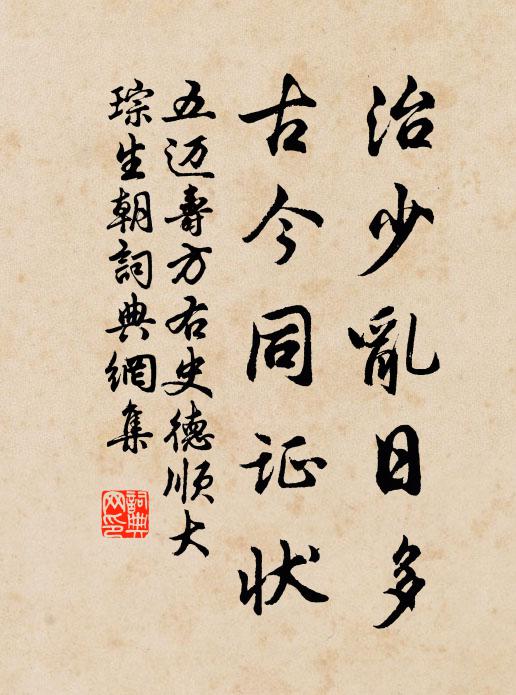 治少亂日多
古今同证状
五迈寿方右史德顺大
琮生朝詞典網集
詞典
网印